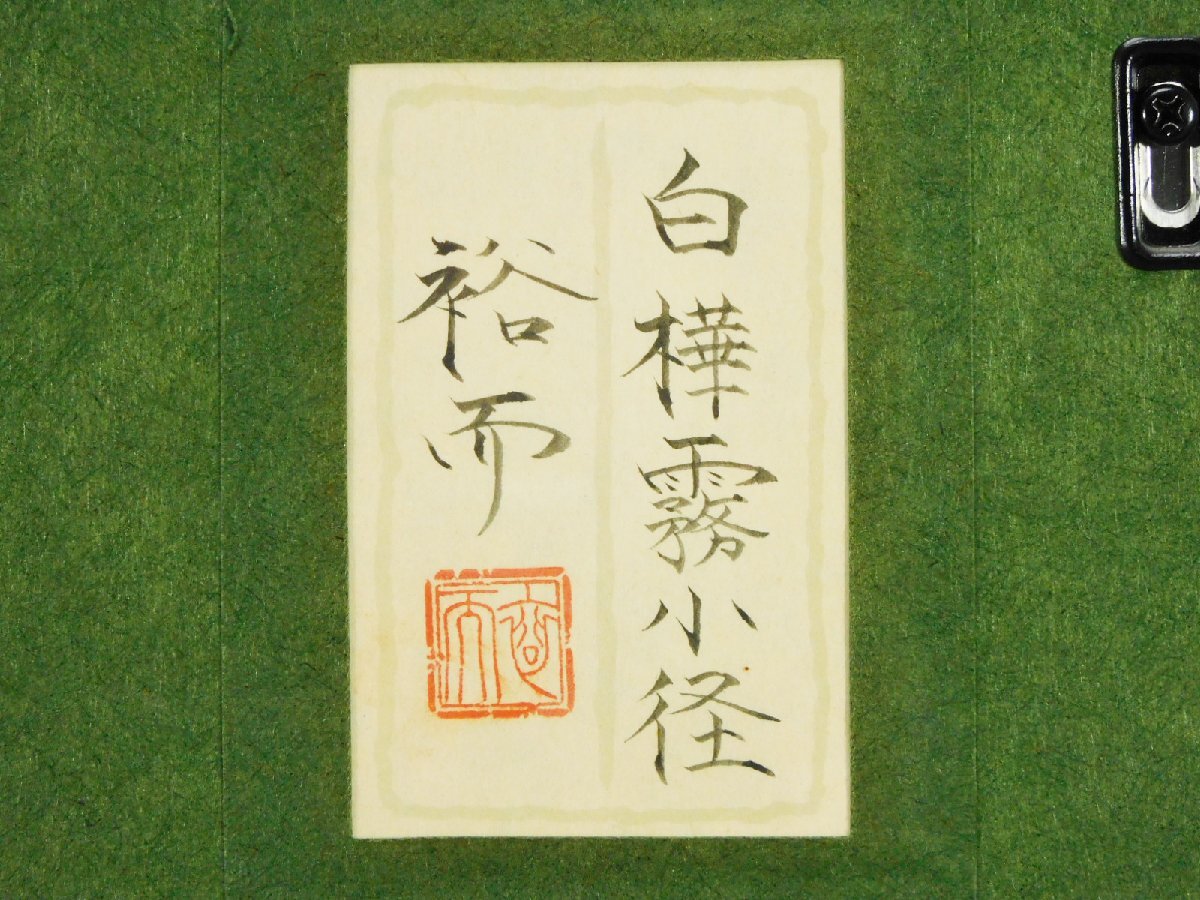 白樺霧小径
裕而